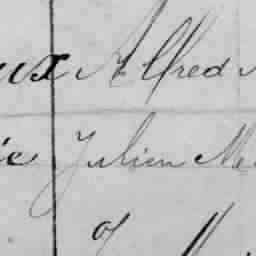 ux Alfred
ie Julien Me
of